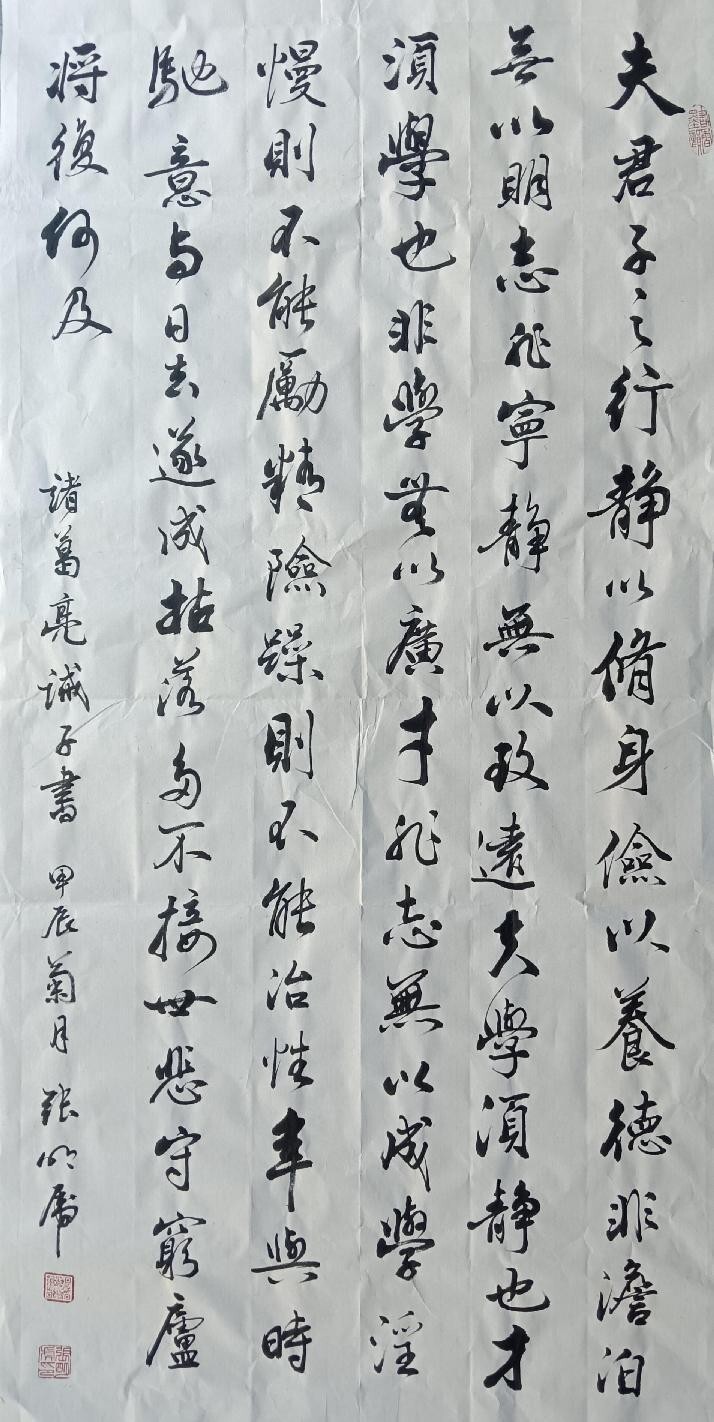 夫君子之行静以脩身儉以養德非澹泊
無以明志非寧静無以致遠夫學須静也才
須學也非學無以廣才非志無以成學淫
慢則不能勵精險躁則不能冶性年與時
馳意与日去遂成枯落多不接世悲守窮廬
将復何及
諸葛亮誡子書 甲辰菊月 張